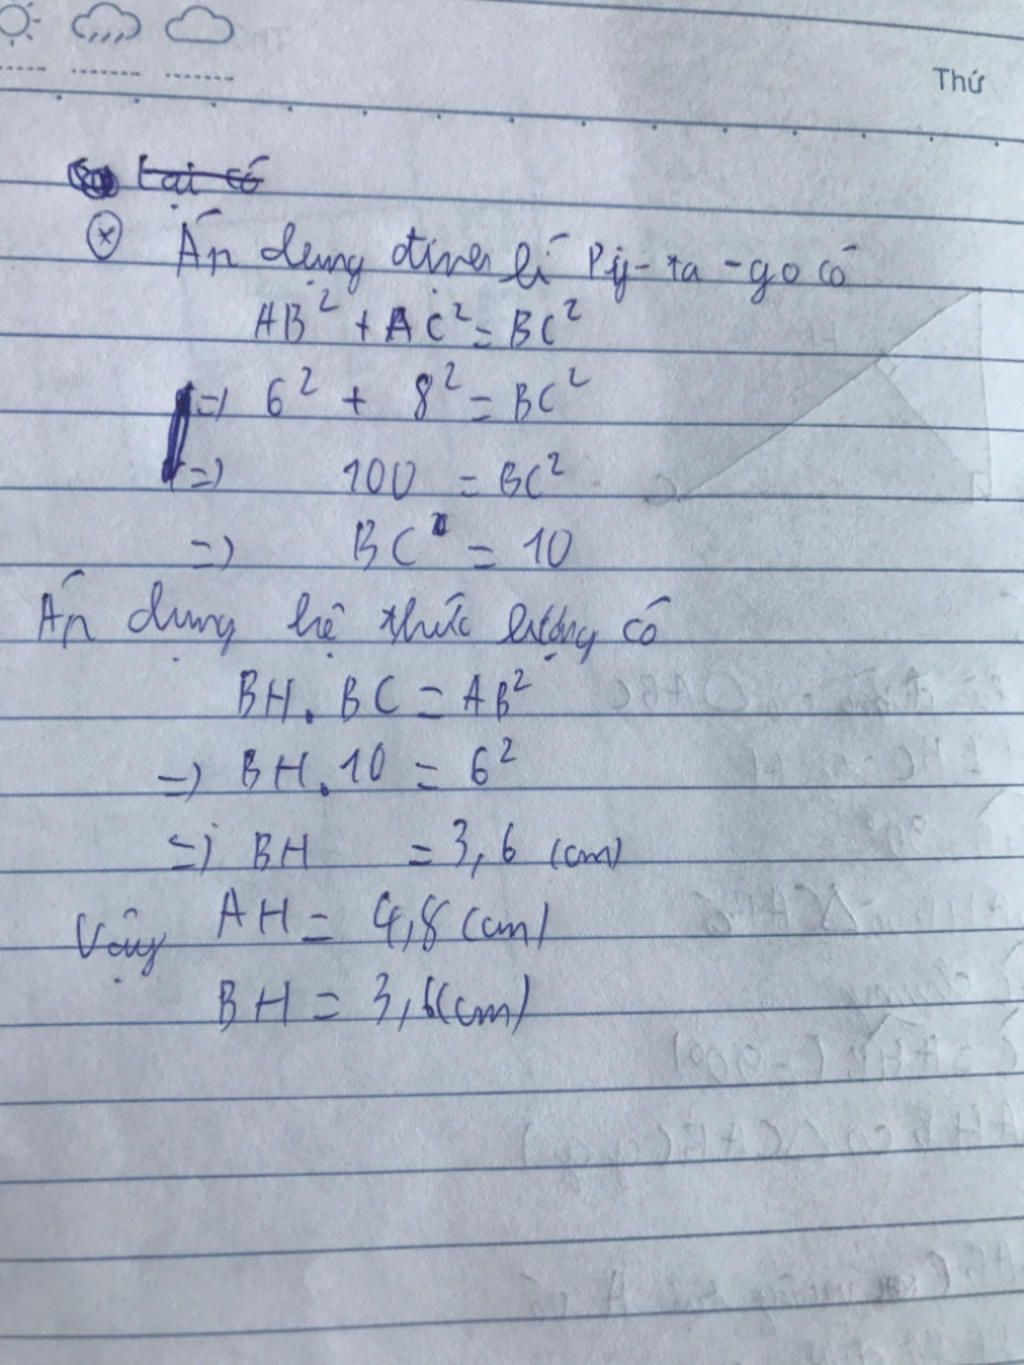 Thứ
tại có
Áp dụng định lí Py-ta-go có
AB² + AC² = BC²
=> 6² + 8² = BC²
=> 100 = BC²
=> BC = 10
Áp dụng hệ thức lượng có
BH . BC = AB²
=> BH . 10 = 6²
=> BH = 3,6 (cm)
Vậy AH = 4,8 (cm)
BH = 3,6 (cm)